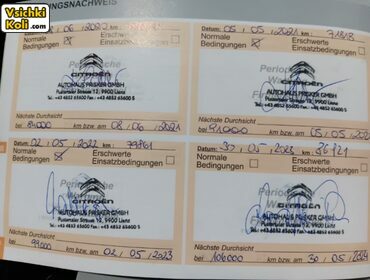 Vsichki
Koli .com
NGSNACHWEIS
06 / 2020 km
Normale
Bedingungen
Erschwerte
Einsatzbedingungen
CITROËN
AUTOHAUS PASKER GMBH
Pustertaler Strasse 12, 9900 Lienz
Tel.: +43 4852 65600 Fax: +43 4852 65600 5
Nächste Durchsicht
bei 84000 km bzw. am 08 / 06 / 2021
Datum 05 / 05 / 2021 km 71818
Normale
Bedingungen
Erschwerte
Einsatzbedingungen
CITROËN
AUTOHAUS PASKER GMBH
Pustertaler Strasse 12, 9900 Lienz
Tel.: +43 4852 65600 Fax: +43 4852 65600 5
Nächste Durchsicht
bei 91000 km bzw. am 05 / 05 /
Datum 02 / 05 / 2022 km 79161
Normale
Bedingungen
Erschwerte
Einsatzbedingungen
CITROËN
AUTOHAUS PASKER GMBH
Pustertaler Strasse 12, 9900 Lienz
Tel.: +43 4852 65600 Fax: +43 4852 65600 5
Nächste Durchsicht
bei 99000 km bzw. am 02 / 05 / 2023
Datum 30 / 05 / 2023 km 86121
Normale
Bedingungen
Erschwerte
Einsatzbedingungen
CITROËN
AUTOHAUS PASKER GMBH
Pustertaler Strasse 12, 9900 Lienz
Tel.: +43 4852 65600 Fax: +43 4852 65600 5
Nächste Durchsicht
bei 106000 km bzw. am 30 / 05 / 2024